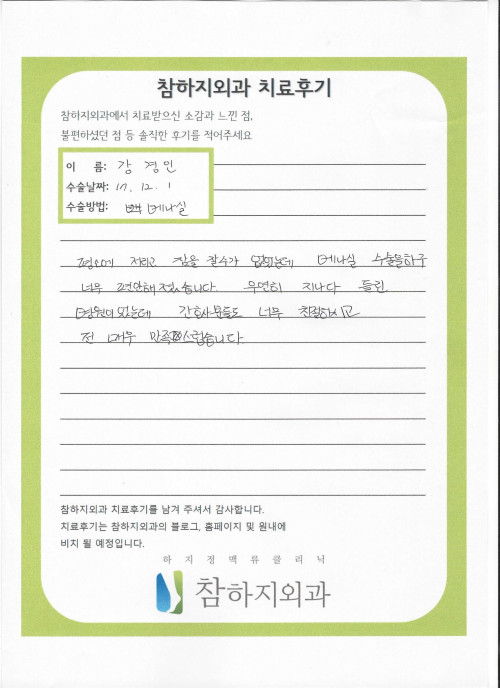 참하지외과 치료후기
참하지외과에서 치료받으신 소감과 느낀 점,
불편하셨던 점 등 솔직한 후기를 적어주세요
이 름: 강경민
수술날짜: 17. 12. 1
수술방법: 베나실
평소에 저리고 잠을 잘수가 없었는데 베나실 수술을하구
너무 편안해졌습니다. 우연히 지나다 들린
병원이었는데 간호사분들도 너무 친절하시고
전 매우 만족스럽습니다.
참하지외과 치료후기를 남겨 주셔서 감사합니다.
치료후기는 참하지외과의 블로그, 홈페이지 및 원내에
비치 될 예정입니다.
하지정맥류클리닉
참하지외과